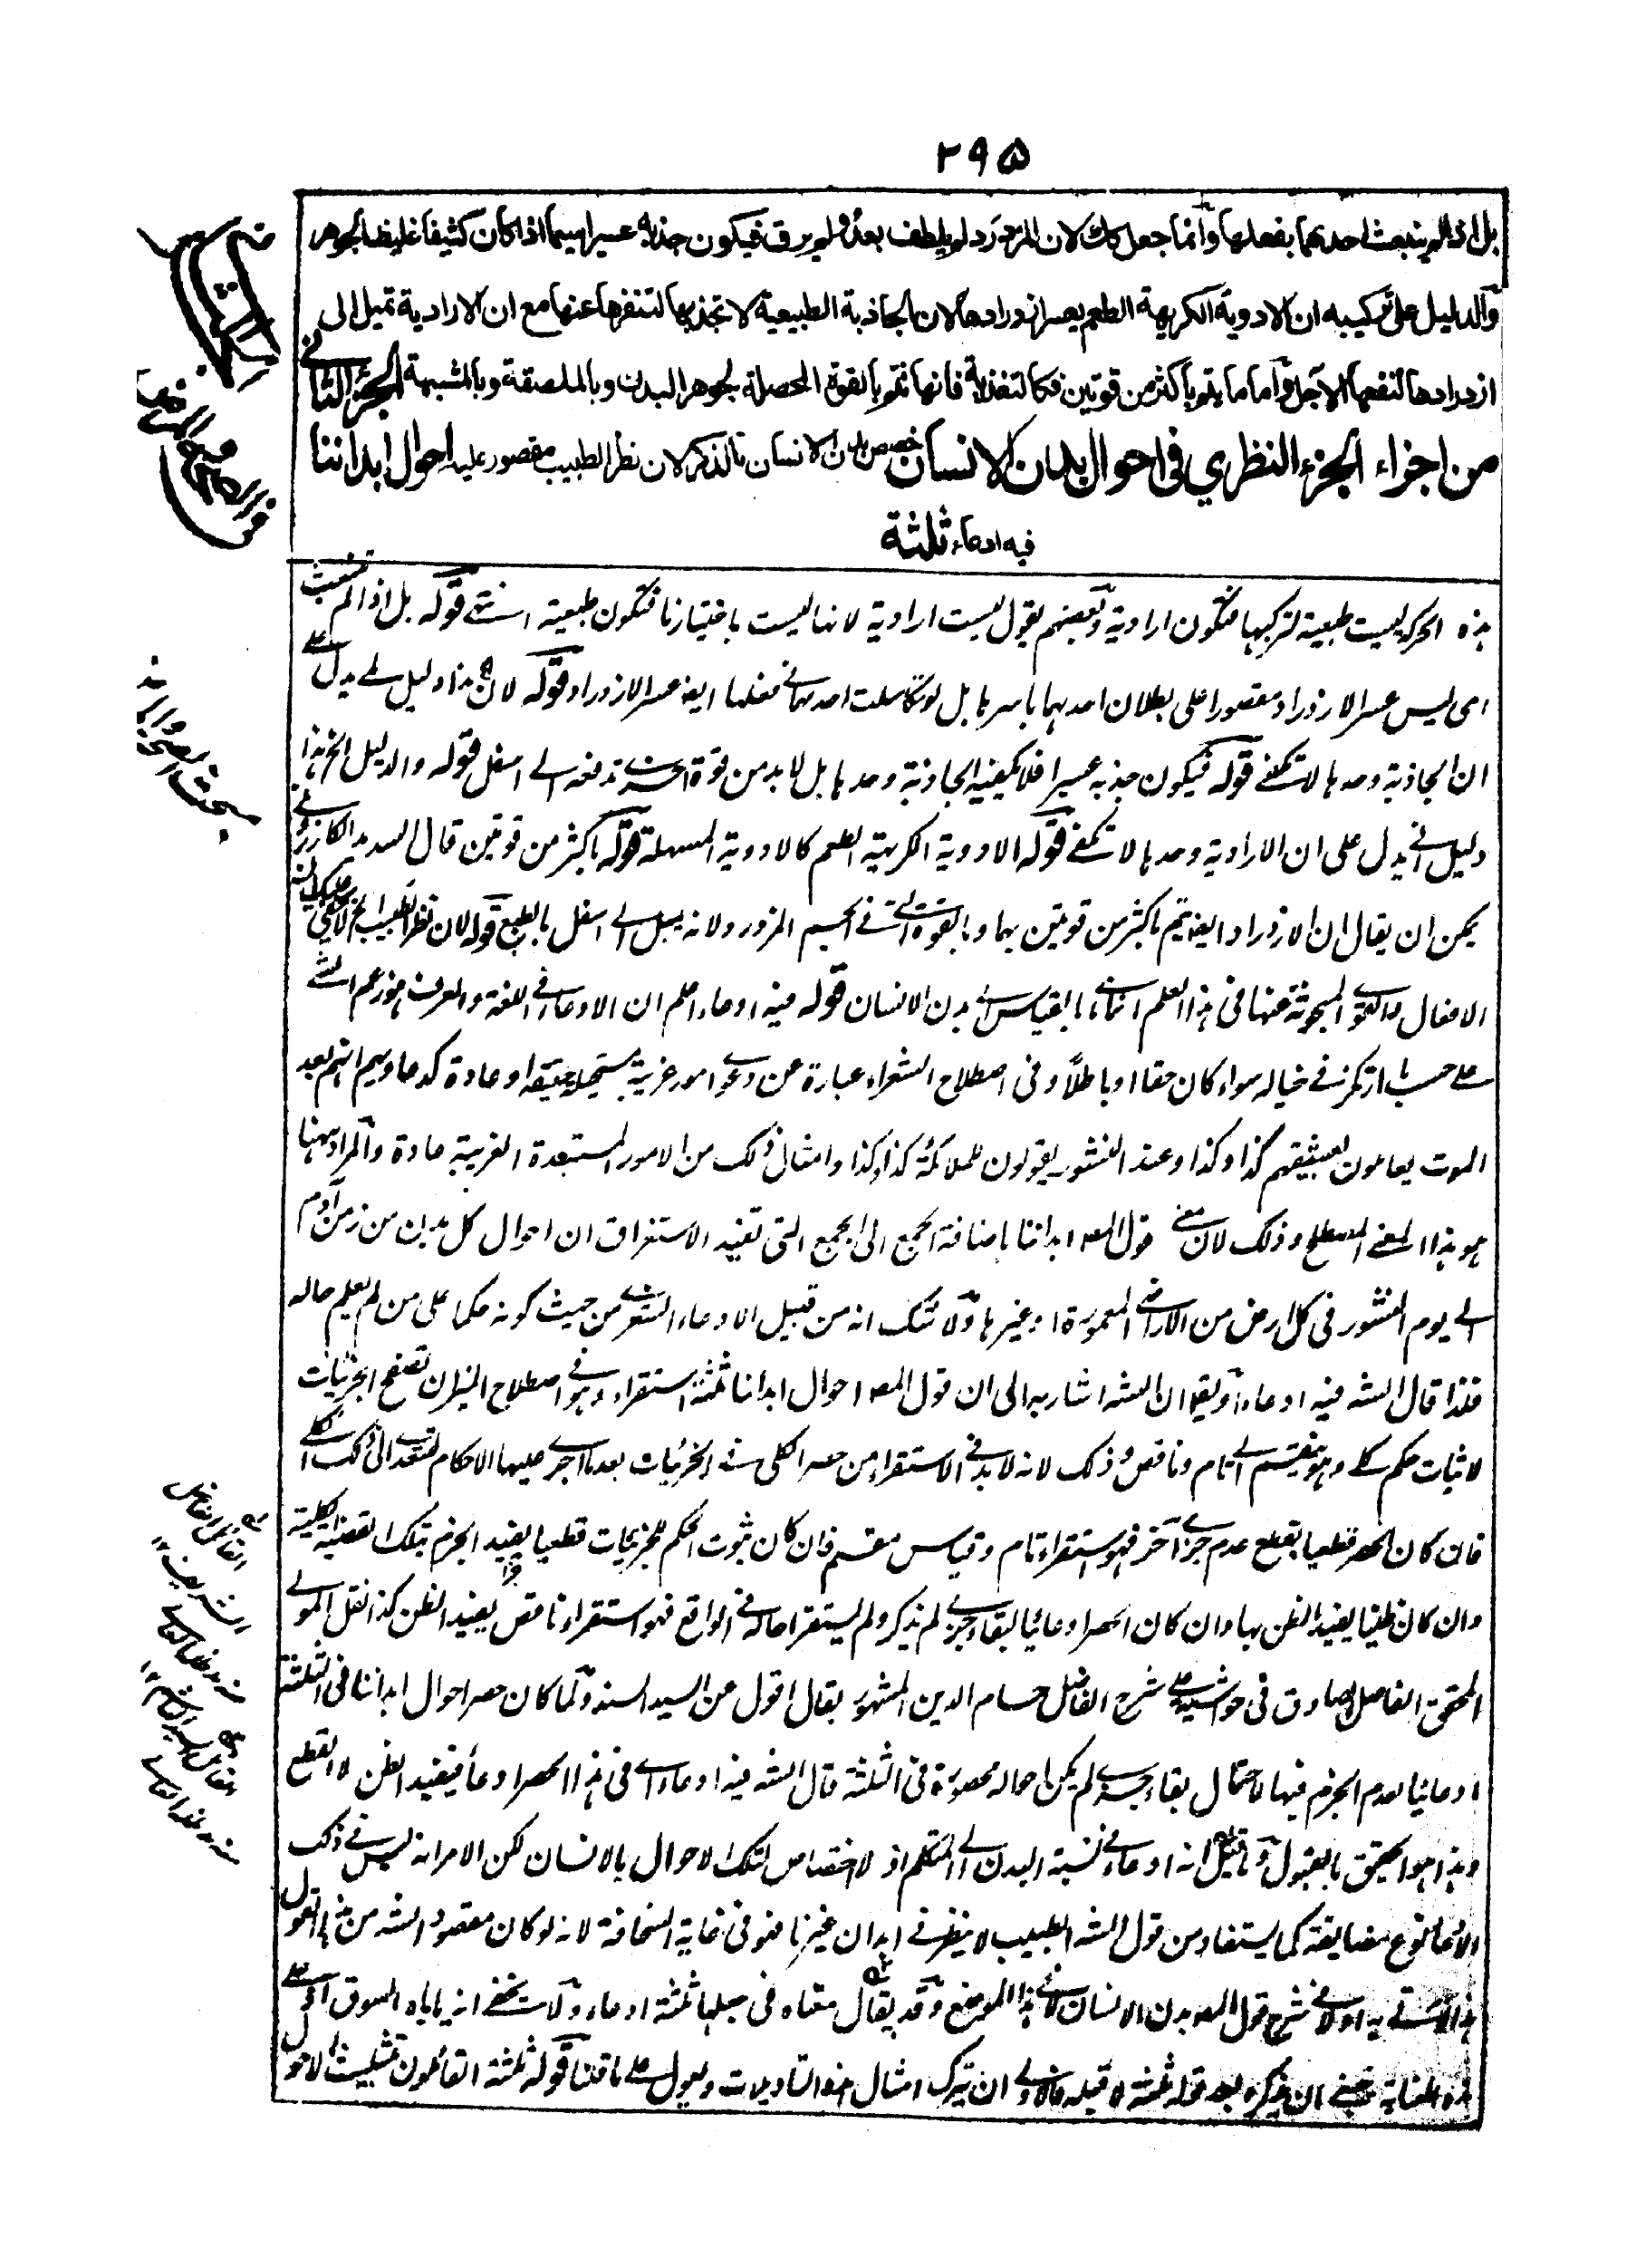 ٢٩٥
بل اذا لم ينبعث احدهما بفعلها وانما جعل كك لان المزدرد لم يلطف بعد ولم يرق فيكون جذبه عسيرا سيما اذا كان كثيفا غليظ الجوهر
والدليل على تركيبه ان الادوية الكريهة الطعم يعسر ازدرادها لان الجاذبة الطبيعية لا تجذبها لتنفرها عنها مع ان الارادية تميل الى
ازدرادها لنفعها الآجل واما ما يتم باكثر من قوتين فكالتغذية فانها تتم بالقوة المحصلة لجوهر البدن وبالملصقة وبالمشبهة الجزء الثاني
من اجزاء الجزء النظري في احوال بدن الانسان خصص بدن الانسان بالذكر لان نظر الطبيب مقصور عليه احوال ابداننا
فيه ادعاء ثلثة
هذه الحركة ليست طبعية لتركبها فتكون ارادية وبعضهم يقول ليست ارادية لانها ليست باختيارنا فتكون طبعية انتهى قوله بل اذا لم ينبعث
اى ليس عسر الازدراد مقصورا على بطلان احدهما باسرها بل لو تكاسلت احدهما فى فعلها ايضا عسر الازدراد قوله لان هذا دليل يدل على
ان الجاذبة وحدها لا تكفى قوله فيكون جذبه عسيرا فلا تكفيه الجاذبة وحدها بل لا بد من قوة اخرى تدفعه الى اسفل قوله والدليل الخ هذا
دليل انى يدل على ان الارادية وحدها لا تكفى قوله الادوية الكريهة الطعم كالادوية المسهلة قوله باكثر من قوتين قال السديد الكازرونى
يمكن ان يقال ان الازدراد ايضا يتم باكثر من قوتين بهما وبالقوة التى فى الجسم المزدرد لانه يميل الى اسفل بالطبع قوله لان نظر الطبيب الخ
الافعال والقوى المبحوثة عنها فى هذا العلم انما هى بالقياس الى بدن الانسان قوله فيه ادعاء اعلم ان الادعاء فى اللغة والعرف هو زعم الشئ
على حسب ما ارتكز فى خياله سواء كان حقا او باطلا وفى اصطلاح الشعراء عبارة عن دعوى امور غريبة مستحيلة حقيقة او عادة كدعاويهم انهم بعد
الموت يعاملون بعشيقهم كذا وكذا وعند النشور يقولون للملائكة كذا وكذا وامثال ذلك من الامور المستبعدة الغريبة عادة والمراد ههنا
هو هذا المعنى المصطلح وذلك لان معنى قول المصـ ابداننا باضافة الجمع الى الجمع التى تفيد الاستغراق ان احوال كل بدن من زمن آدم
الى يوم النشور فى كل ارض من الاراضى المعمورة او غيرها ولا شك انه من قبيل الادعاء الشعرى من حيث كونه حكما على من لم يعلم حاله
فلذا قال الشـ فيه ادعاء او يقـ ان الشـ اشار به الى ان قول المصـ احوال ابداننا ثلثة استقراء وهو فى اصطلاح الميزان تصفح الجزئيات
لاثبات حكم كلى وهو ينقسم الى تام وناقص وذلك لانه لا بد فى الاستقراء من حصر الكلى فى الجزئيات بعده اجرى عليها الاحكام لتتعدى الى ذلك الكلى
فان كان الحصر قطعيا بقطع عدم جزئ آخر فهو استقراء تام وقياس مقسم فان كان ثبوت الحكم للجزئيات قطعيا يفيد الجزم بتلك القضية الكلية
وان كان ظنيا يفيد الظن بها وان كان الحصر ادعائيا لبقاء جزئ لم يذكر ولم يستقرا حاله فى الواقع فهو استقراء ناقص يفيد الظن كذا نقل المولى
المحقق الفاضل الصادق فى حواشيه على شرح الفاضل حسام الدين المشهور بقال اقول عن السيد السند ولما كان حصر احوال ابداننا فى الثلثة
ادعائيا لعدم الجزم فيها لاحتمال بقاء جزئ لم يكن احواله محصورة فى الثلثة قال الشـ فيه ادعاء اى فى هذا الحصر ادعاء فيفيد الظن لا القطع
وهذا هو الحقيق بالقبول وما قيل انه ادعاء فى نسبة البدن الى المتكلم اذ لا اختصاص لتلك الاحوال بالانسان لكن الامر انه ليس فى ذلك
الادعاء نوع مضايقة كما يستفاد من قول الشـ الطبيب لا ينظر فى ابدان غيرنا فهو فى غاية السخافة لانه لو كان مقصود الشـ من هذا القول
هذا لاتى به اولا فى شرح قول المصـ بدن الانسان لا فى هذا الموضع وقد يقال معناه فى جعلها ثلثة ادعاء ولا يخفى انه ياباه السوق اذ على
هذه العناية ينبغى ان يذكره بعد قوله ثلثة لا قبله فالاولى ان يترك امثال هذه التاويلات ويعول على ما قلنا قوله ثلثة القائلون بتثليث الاحوال